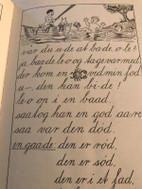 var du ude at bade, o-le!
ja bar de le og tage var mud
der kom en ved min fod
u-, den kan bi-de!
le o op i en baad.
saa tog han en god aare
saa var den död.
en gaade: den er röd,
den er söd,
den er i et fad.